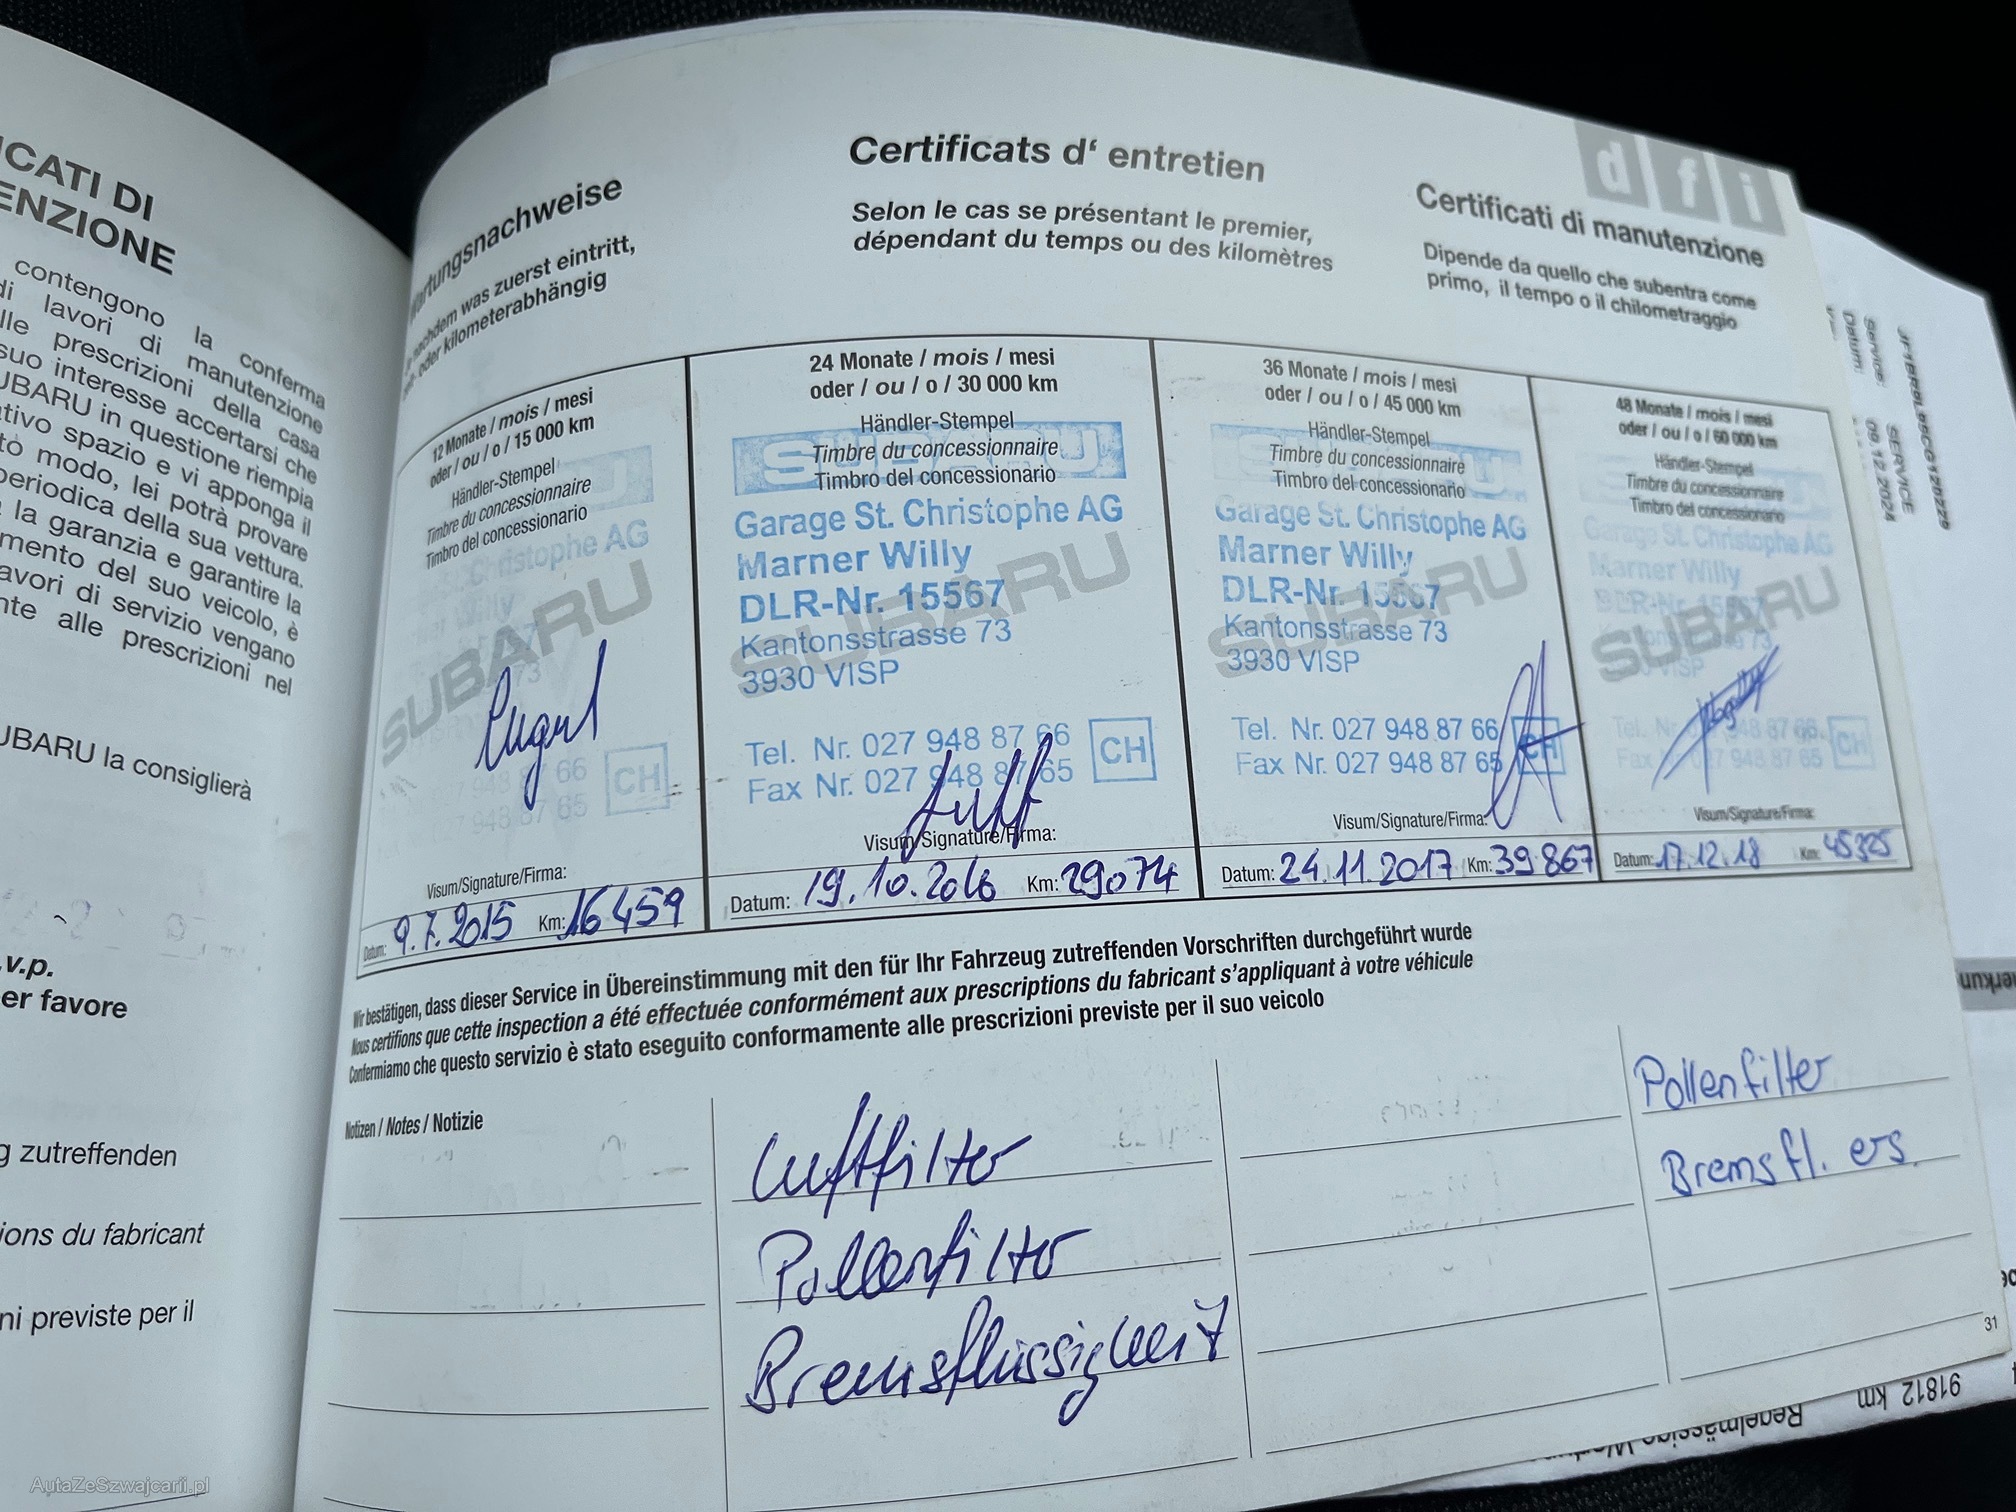 ICATI DI
ENZIONE
contengono la conferma
di lavori di manutenzione
lle prescrizioni della casa
suo interesse accertarsi che
UBARU in questione riempia
ativo spazio e vi apponga il
to modo, lei potrà provare
periodica della sua vettura.
la garanzia e garantire la
mento del suo veicolo, è
avori di servizio vengano
nte alle prescrizioni nel
UBARU la consiglierà
.v.p.
er favore
g zutreffenden
ions du fabricant
ni previste per il
artungsnachweise
nachdem was zuerst eintritt,
oder kilometerabhängig
Certificats d' entretien
Selon le cas se présentant le premier,
dépendant du temps ou des kilomètres
dfi
Certificati di manutenzione
Dipende da quello che subentra come
primo, il tempo o il chilometraggio
12 Monate / mois / mesi
oder / ou / o / 15 000 km
Händler-Stempel
Timbre du concessionnaire
Timbro del concessionario
Christophe AG
SUBARU
CH
Visum/Signature/Firma:
Datum: 9.7.2015 Km: 16459
24 Monate / mois / mesi
oder / ou / o / 30 000 km
Händler-Stempel
SUBARU
Timbre du concessionnaire
Timbro del concessionario
Garage St. Christophe AG
Marner Willy
DLR-Nr. 15567
SUBARU
Kantonsstrasse 73
3930 VISP
Tel. Nr. 027 948 87 66
Fax Nr. 027 948 87 65
CH
Visum/Signature/Firma:
Datum: 19.10.2016 Km: 29074
36 Monate / mois / mesi
oder / ou / o / 45 000 km
Händler-Stempel
Timbre du concessionnaire
Timbro del concessionario
Garage St. Christophe AG
Marner Willy
DLR-Nr. 15567
SUBARU
Kantonsstrasse 73
3930 VISP
Tel. Nr. 027 948 87 66
Fax Nr. 027 948 87 65
CH
Visum/Signature/Firma:
Datum: 24.11.2017 Km: 39867
48 Monate / mois / mesi
oder / ou / o / 60 000 km
Händler-Stempel
Timbre du concessionnaire
Timbro del concessionario
Garage St. Christophe AG
Marner Willy
DLR-Nr. 15567
SUBARU
CH
Visum/Signature/Firma:
Datum: 17.12.18 Km: 45325
Wir bestätigen, dass dieser Service in Übereinstimmung mit den für Ihr Fahrzeug zutreffenden Vorschriften durchgeführt wurde
Nous certifions que cette inspection a été effectuée conformément aux prescriptions du fabricant s'appliquant à votre véhicule
Confermiamo che questo servizio è stato eseguito conformamente alle prescrizioni previste per il suo veicolo
Notizen / Notes / Notizie
Luftfilter
Pollenfilter
Bremsflüssigkeit
Pollenfilter
Bremsfl. ers.
31
Datum:
Service:
09.12.2024
SERVICE
91812 km
Regelmässige
AutaZeSzwajcarii.pl